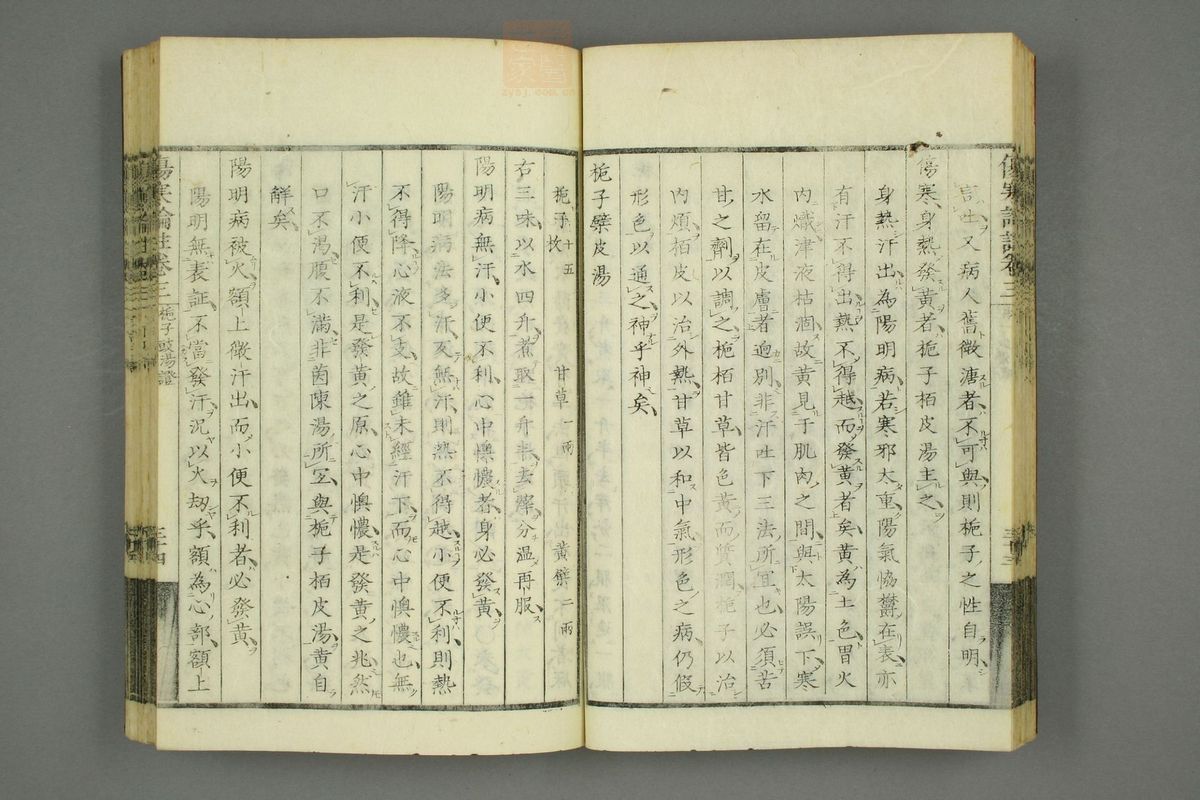 言吐又病人舊微溏者不可與則梔子之性自明
傷寒身熱發黃者梔子栢皮湯主之
身熱汗出為陽明病若寒邪太重陽氣怫鬱在表亦
有汗不得出熱不得越而發黃者矣黃為土色胃火
內熾津液枯涸故黃見于肌肉之間與太陽誤下寒
水留在皮膚者逈別非汗吐下三法所宜也必須苦
甘之劑以調之梔栢甘草皆色黃而質潤梔子以治
內煩栢皮以治外熱甘草以和中氣形色之病仍假
形色以通之神乎神矣
梔子檗皮湯
梔子十五枚 甘草一兩 黃檗二兩
右三味以水四升煮取一升半去滓分溫再服
陽明病無汗小便不利心中懊憹者身必發黃
陽明病法多汗反無汗則熱不得越小便不利則熱
不得降心液不支故雖未經汗下而心中懊憹也無
汗小便不利是發黃之原心中懊憹是發黃之兆然
口不渴腹不滿非茵陳湯所宜與梔子栢皮湯黃自
解矣
陽明病被火額上微汗出而小便不利者必發黃
陽明無表証不當發汗況以火劫乎額為心部額上
傷寒論註卷三
梔子豉湯證
三十四